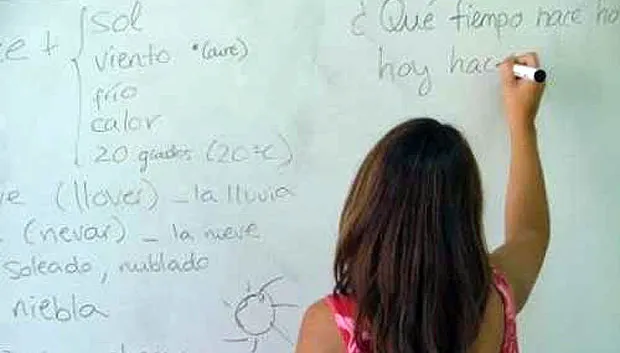 e + sol
viento *(aire)
frío
calor
20 grados (20ºC)
¿Qué tiempo hace ho
hoy hac
e (llover) – la lluvia
(nevar) – la nieve
soleado, nublado
niebla